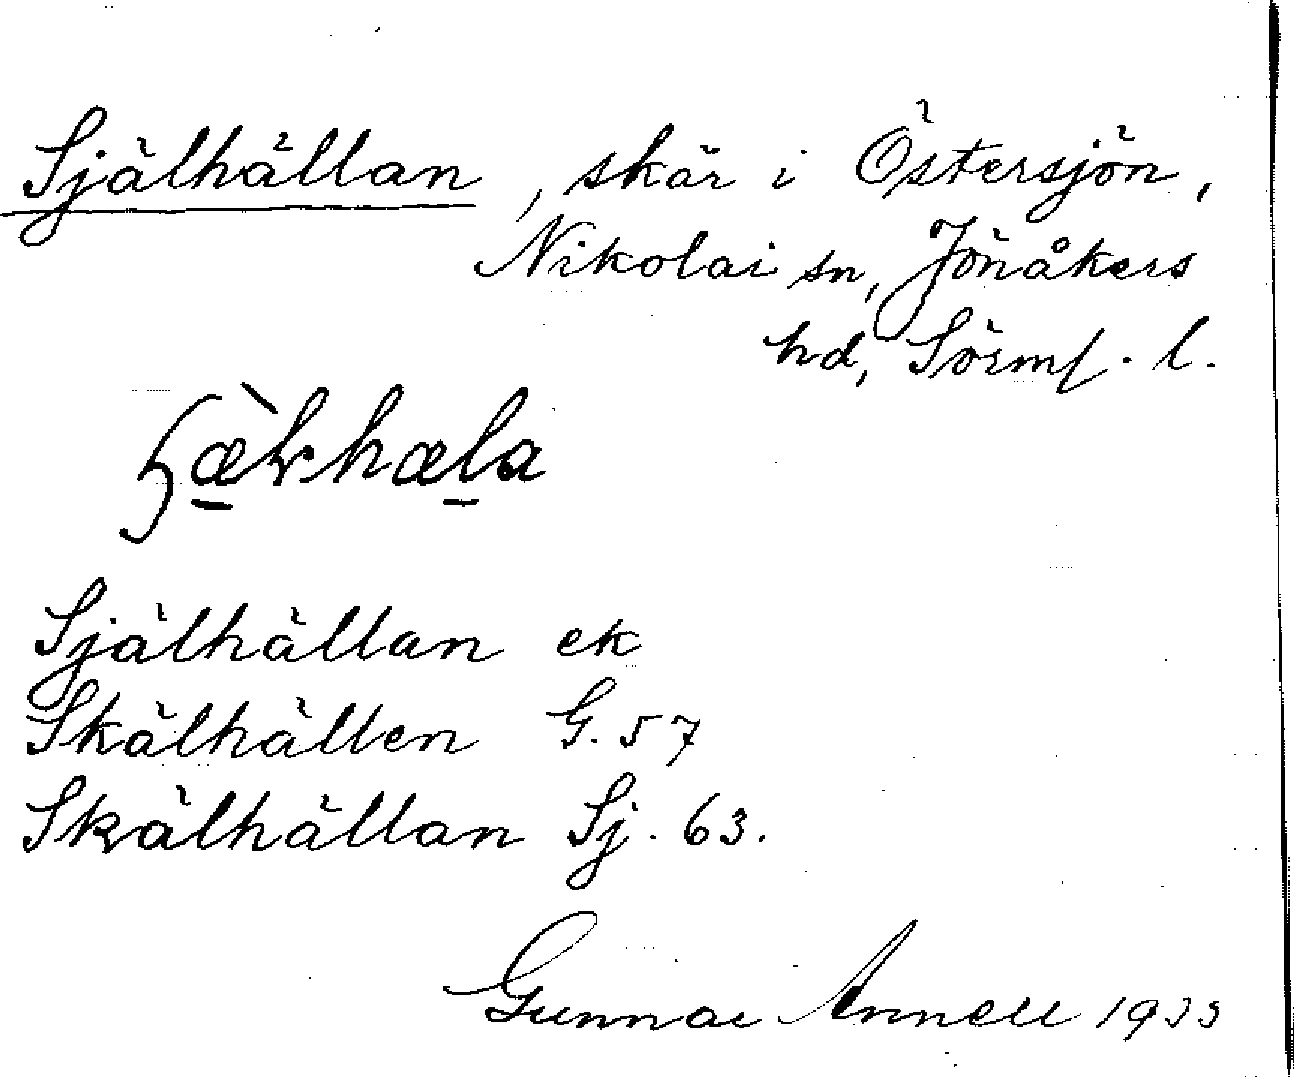 Själhällan, skär i Östersjön,
Nikolai sn, Jönåkers
hd, Sörml. l.
Själhällan ek
Skälhällen G. 57
Skälhällan Sj. 63.
Gunnar Annell 1933